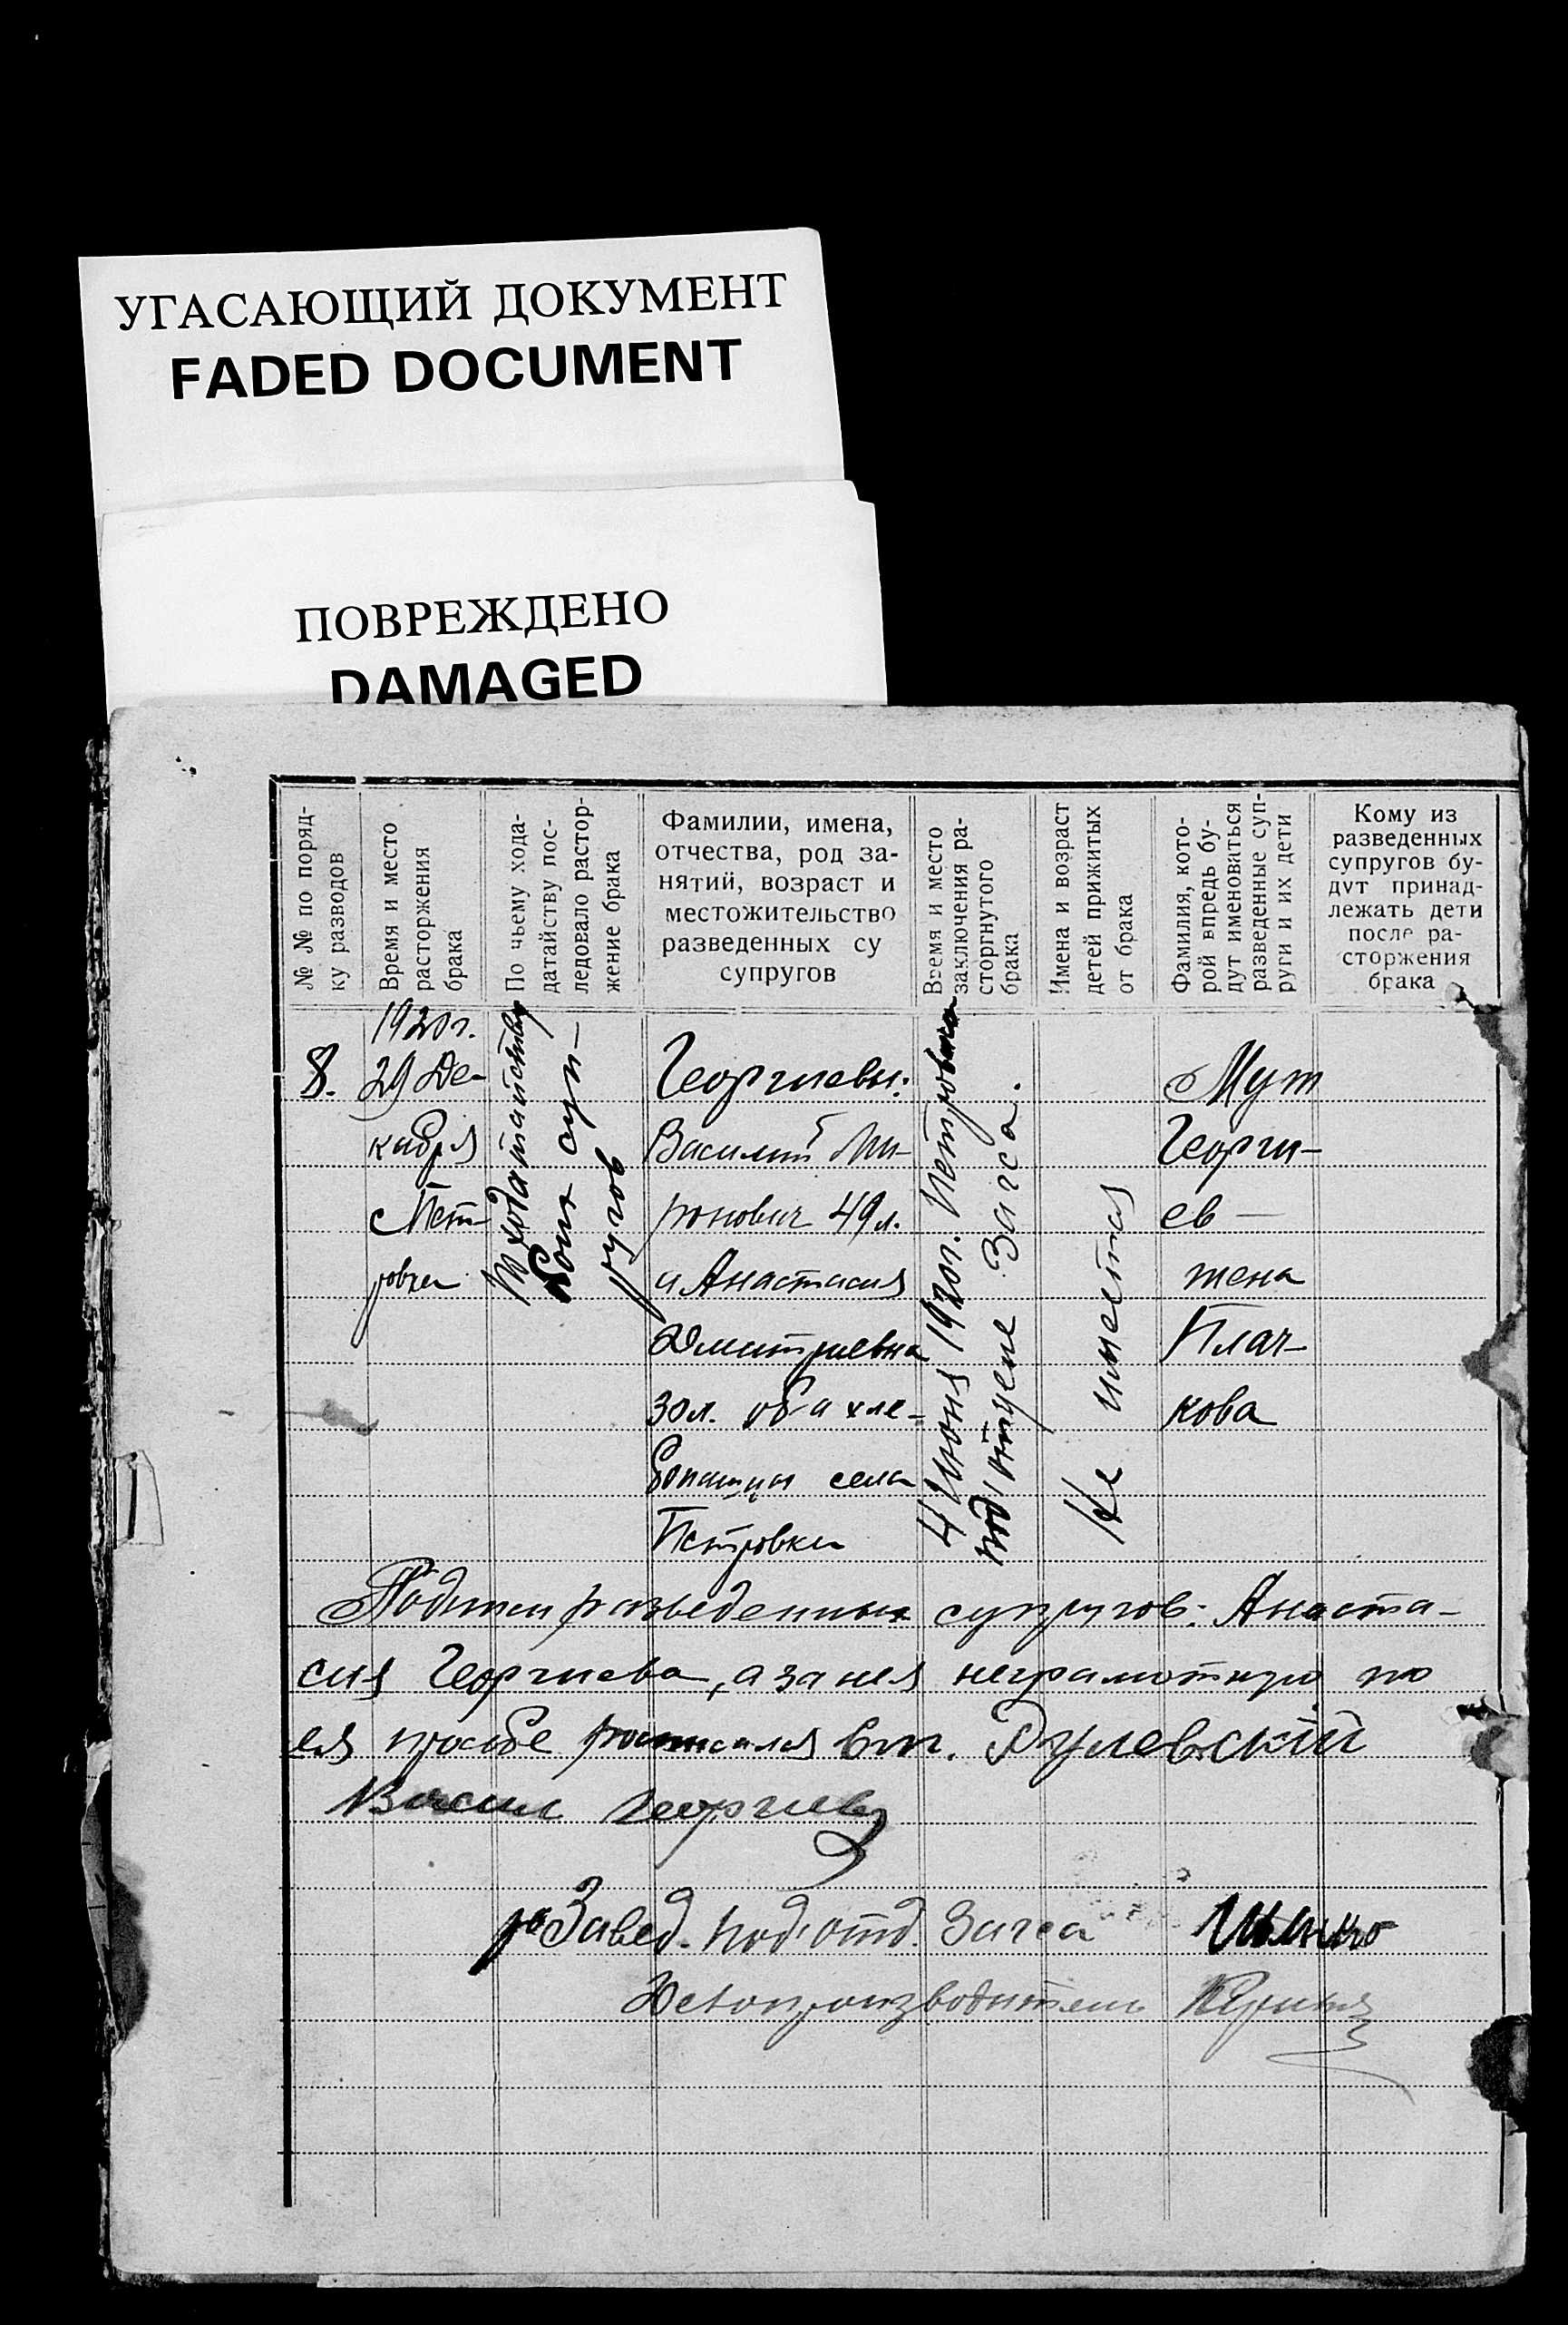 УГАСАЮЩИЙ ДОКУМЕНТ
FADED DOCUMENT
ПОВРЕЖДЕНО
DAMAGED
№ № по поряд-
ку разводов
Время и место
расторжения
брака
По чьему хода-
датайству пос-
ледовало растор-
жение брака
Фамилии, имена,
отчества, род за-
нятий, возраст и
местожительство
разведенных су
супругов
Время и место
заключения ра-
сторгнутого
брака
Имена и возраст
детей прижитых
от брака
Фамилия, кото-
рой впредь бу-
дут именоваться
разведенные суп-
руги и их дети
Кому из
разведенных
супругов бу-
дут принад-
лежать дети
после ра-
сторжения
брака
8.
1920 г.
29 Де-
кабря
с Пет-
ровка
По ходатайству
обоих суп-
ругов
Георгиевы:
Василий Ми-
ронович 49 л.
и Анастасия
Дмитриевна
30 л. оба хле-
бопашцы села
Петровки
4 Июня 1920 г. Петровском
под'отделе Загса.
Не имеется
Муж
Георги-
ев —
жена
Плач-
кова
Подписи разведенных супругов: Анаста-
сия Георгиева, а за нея неграмотную по
ея просьбе росписался
Васил Георгиев
Завед. под'отд. Загса
Делопроизводитель